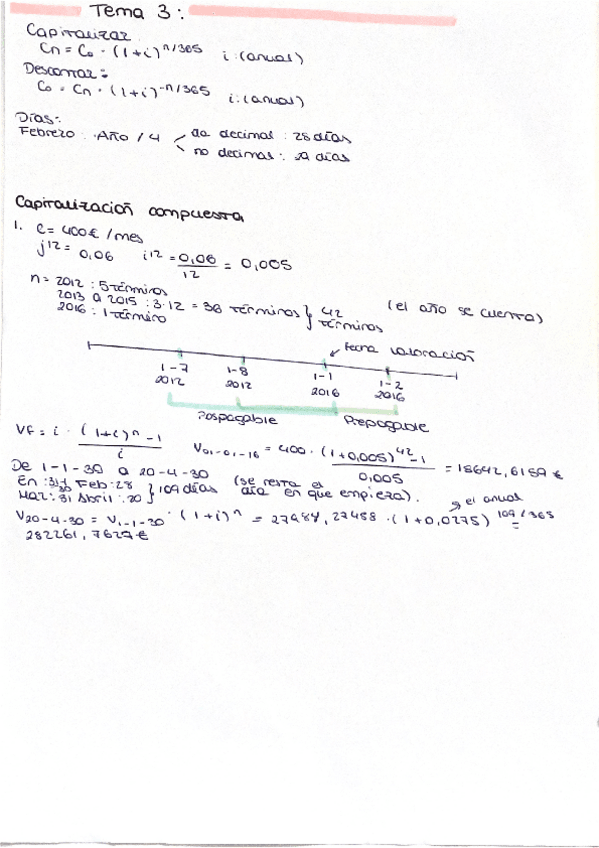 Tema 3:
Capitalizar
Cn = Co · (1+i)^n/365 i: (anual)
Descontar:
Co = Cn · (1+i)^-n/365 i: (anual)
Días:
Febrero: Año / 4 da decimal: 28 días
no decimal: 29 días
Capitalización compuesta
1. C = 400€ /mes
j12 = 0,06 i12 = 0,06 / 12 = 0,005
n = 2012: 5 términos
2013 a 2015: 3·12 = 36 términos } 42 términos (el año se cuenta)
2016: 1 término
fecha valoración
1-7 2012 1-8 2012 1-1 2016 1-2 2016
Pospagable Prepagable
VF = i · (1+i)^n - 1 / i V01-01-16 = 400 · (1+0,005)^42 - 1 / 0,005 = 18642,6159 €
De 1-1-30 a 20-4-30
En: 30 Feb: 28 } 109 días (se resta el
Mar: 31 Abril: 20 día en que empieza).
el anual
V20-4-30 = V1-1-30 · (1+i)^n = 27984,27458 · (1+0,0275)^109/365 =
282261,7627€